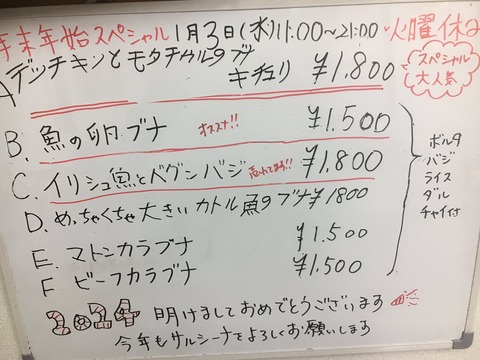 年末年始スペシャル 1月3日(水)11:00~21:00 火曜休み
A デッチキンとモタチャルダブ
キチュリ ¥1.800
スペシャル
大人気
B. 魚の卵ブナ オススメ!! ¥1.500
C. イリシュ魚とベグンバジ 売れてます!! ¥1,800
D. めちゃくちゃ大きいカトル魚のブナ ¥1800
E. マトンカラブナ ¥1.500
F ビーフカラブナ ¥1,500
ボルタ
バジ
ライス
ダル
チャイ付
明けましておめでとうございます
今年もサルシーナをよろしくお願いします